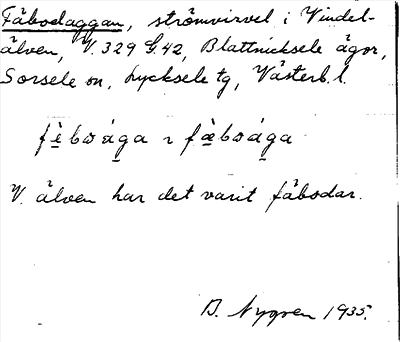 Fäbodaggan, strömvirvel i Vindel-
älven, V. 329 G.42, Blattnicksele ägor,
Sorsele sn, Lycksele tg, Västerb. l.
V. älven har det varit fäbodar.
D. Nygren 1935.